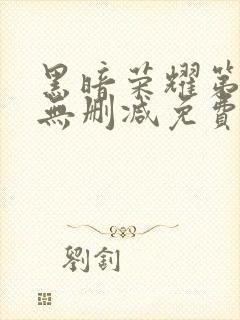 黑暗荣耀第
無删减免費
劉釗